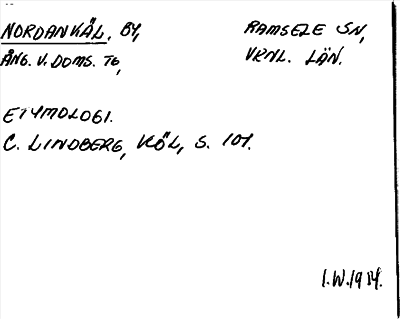 NORDANKÄL, BY, RAMSELE SN,
ÅNG. V. DOMS. TG, VRNL. LÄN.
ETYMOLOGI.
C. LINDBERG, KÖL, S. 101.
I.W.1984.